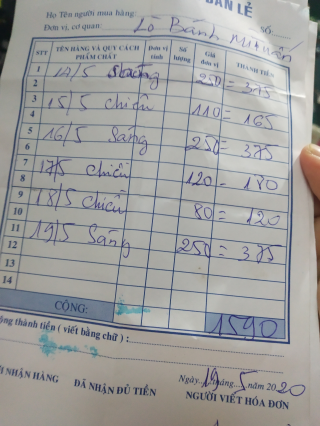 BÁN LẺ
Họ Tên người mua hàng: Số:
Đơn vị, cơ quan: Lò Bánh Mì
STT TÊN HÀNG VÀ QUY CÁCH PHẨM CHẤT Đơn vị tính Số lượng Giá đơn vị THÀNH TIỀN
1 14/5 Sáng 250 = 375
2
3 15/5 chiều 110 = 165
4
5 16/5 Sáng 250 = 375
6
7 17/5 chiều 120 - 180
8
9 18/5 chiều 80 = 120
10
11 19/5 Sáng 250 = 375
12
13
14
CỘNG: 1590
Cộng thành tiền ( viết bằng chữ ) :
Ngày 19 tháng 5 năm 2020
NGƯỜI NHẬN HÀNG ĐÃ NHẬN ĐỦ TIỀN NGƯỜI VIẾT HÓA ĐƠN